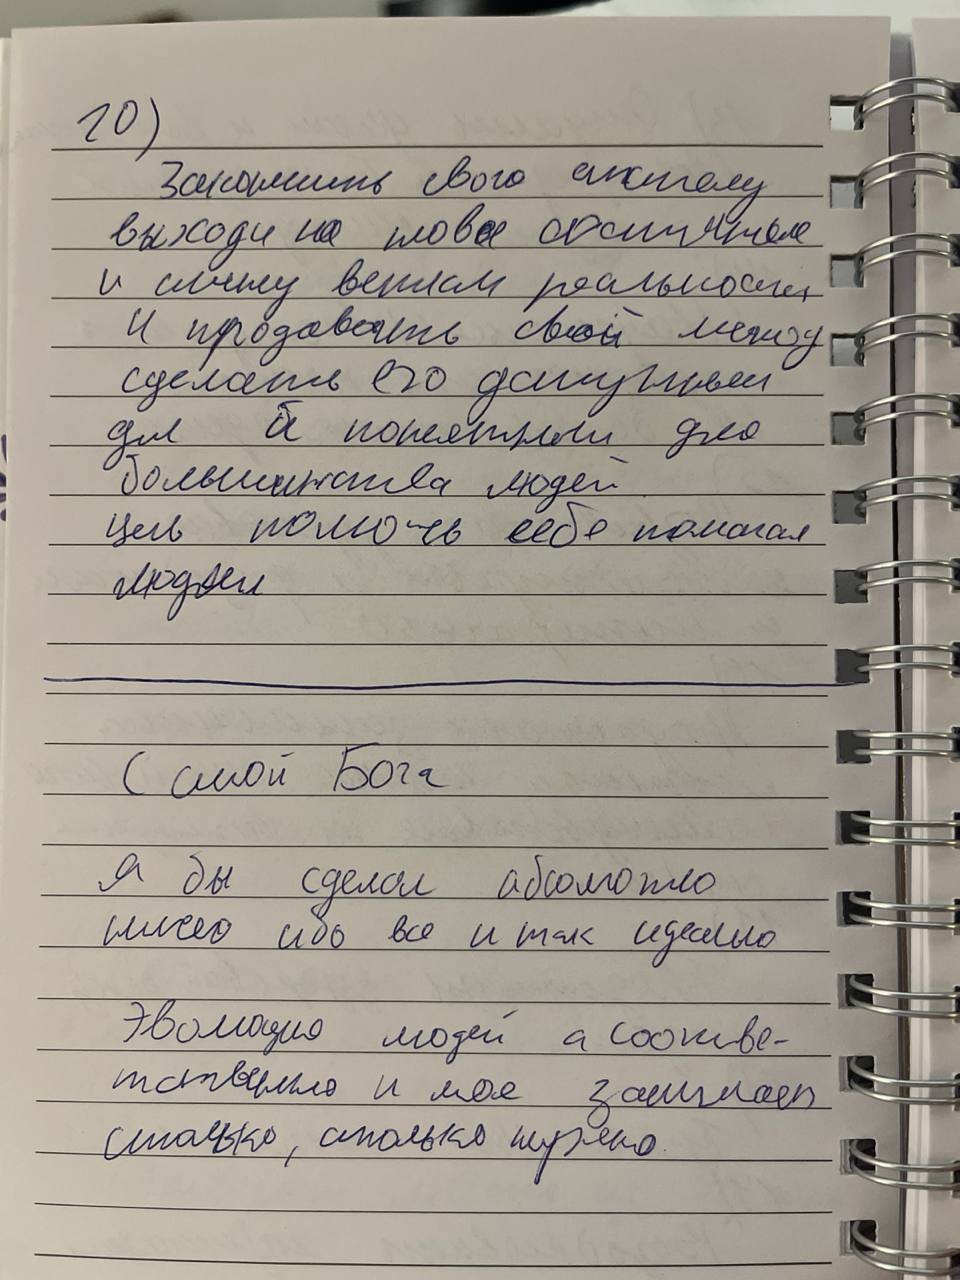 10)
свого систему
выходи на новое состояние
и реальности
И продавать свой метод
сделать его доступным
для и понятным для
большинства людей
цель помочь себе помогая
людям
С силой Бога
Я бы сделал абсолютно
ничего ибо все и так идеально
Эволюция людей а соответ-
тственно и моя занимает
столько, сколько нужно